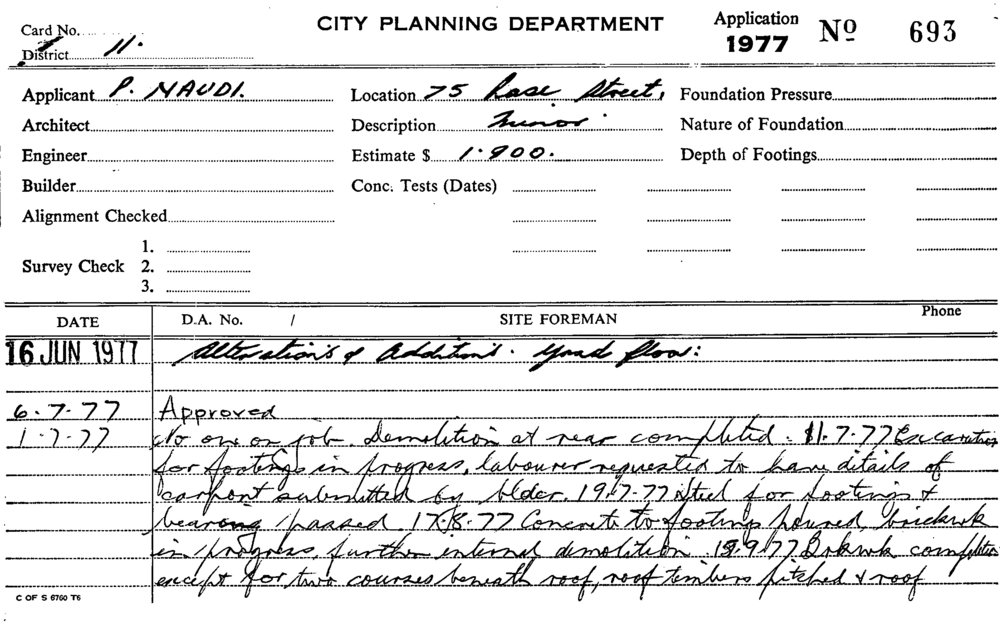 Card No.
CITY PLANNING DEPARTMENT
Application 1977 Nº 693
District 11.
Applicant P. NAUDI. Location 75 Rose Street, Foundation Pressure
Architect Description Minor. Nature of Foundation
Engineer Estimate $ 1.900. Depth of Footings
Builder Conc. Tests (Dates)
Alignment Checked
1.
Survey Check 2.
3.
DATE D.A. No. / SITE FOREMAN Phone
16 JUN 1977 Alterations & Additions. floor:
6.7.77 Approved
1.7.77 No one on job. Demolition at rear completed. 11.7.77 Excavation
for footings in progress, labourer requested to have ditails of
carport submitted by blder. 19.7.77 Steel for footings &
bearing passed. 17.8.77 Concrete to footings poured, brickwk
in progress, further internal demolition. 9.77 Brkwk completion
except for two courses beneath roof, roof timbers pitched & roof
C OF S 6760 T6